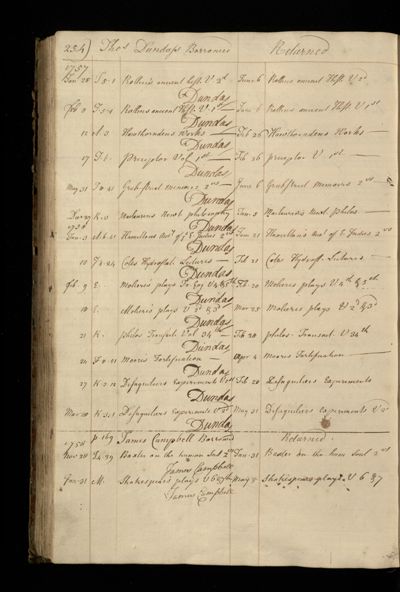 254) Thos Dundass Borrowed Returned
1757
Jan 28 S.5.1 Rollin's ancient hist. V 2d June 6 Rollins ancient Hist V 2d
Dundas
Feb 8 Rollins ancient Hist. V. 1st June 6 Rollins ancient Hist V 1st
Dundas
12 Hawthorndens Works Feb 26 Hawthorndens Works
Dundas
17 Preceptor Vol 1st Feb 26 preceptor V 1st
Dundas
May 31 Grubstreet memoirs 2 vos June 6 Grubstreet memoirs 2 vos
Dundas
Maclaurins Newt philosophy Jan. 3 Maclaurins Newt philos.
1758 Dundas
Jan. 3 Hamiltons Acct of E Indies 2 vos Jan 21 Hamiltons Act of E Indies 2 vos
Dundas
18 Cotes Hydrostat. Lectures Feb 21 Cotes Hydrost. Lectures
Dundas
Feb. 9 E. Moliere's plays Fr Eng V 4 & 5th Feb 20 Molieres plays V 4th & 5th
Dundas
18 E. Moliere's plays V 2d & 3d Mar 25 Molieres plays V 2d & 3d
Dundas
21 K. philos Transact. Vol 34th Feb 28 philos. Transact V 34th
Dundas
21 Morris Fortification Apr 4 Morris Fortification
Dundas
27 K.2.12 Desaguliers Experiments Feb 28 Desaguliers Experiments
Dundas
Mar 20 Desaguliers Experiments V 2d May 31 Desaguliers experiments V 2d
Dundas
1758 p. 169 James Campbell Borrowed Returned
Nov 28 Baxter on the human Soul 2 vos Jan. 31 Baxter on the hum Soul 2 vos
James Campbell
Jan. 31 M. Shakespears plays V 6 & 7th May 8 Shakespears plays V 6 & 7
James Campbell